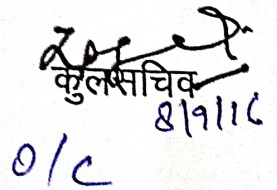 कुलसचिव
8/9/16
O/C